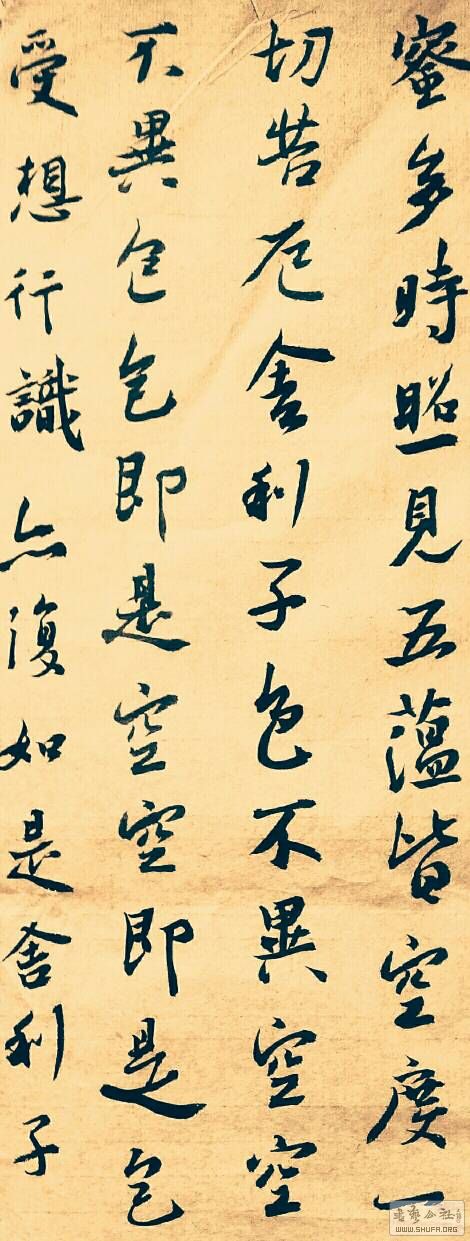 蜜多時照見五蘊皆空度一
切苦厄舍利子色不異空空
不異色色即是空空即是色
受想行識亦復如是舍利子
书艺公社
WWW.SHUFA.ORG